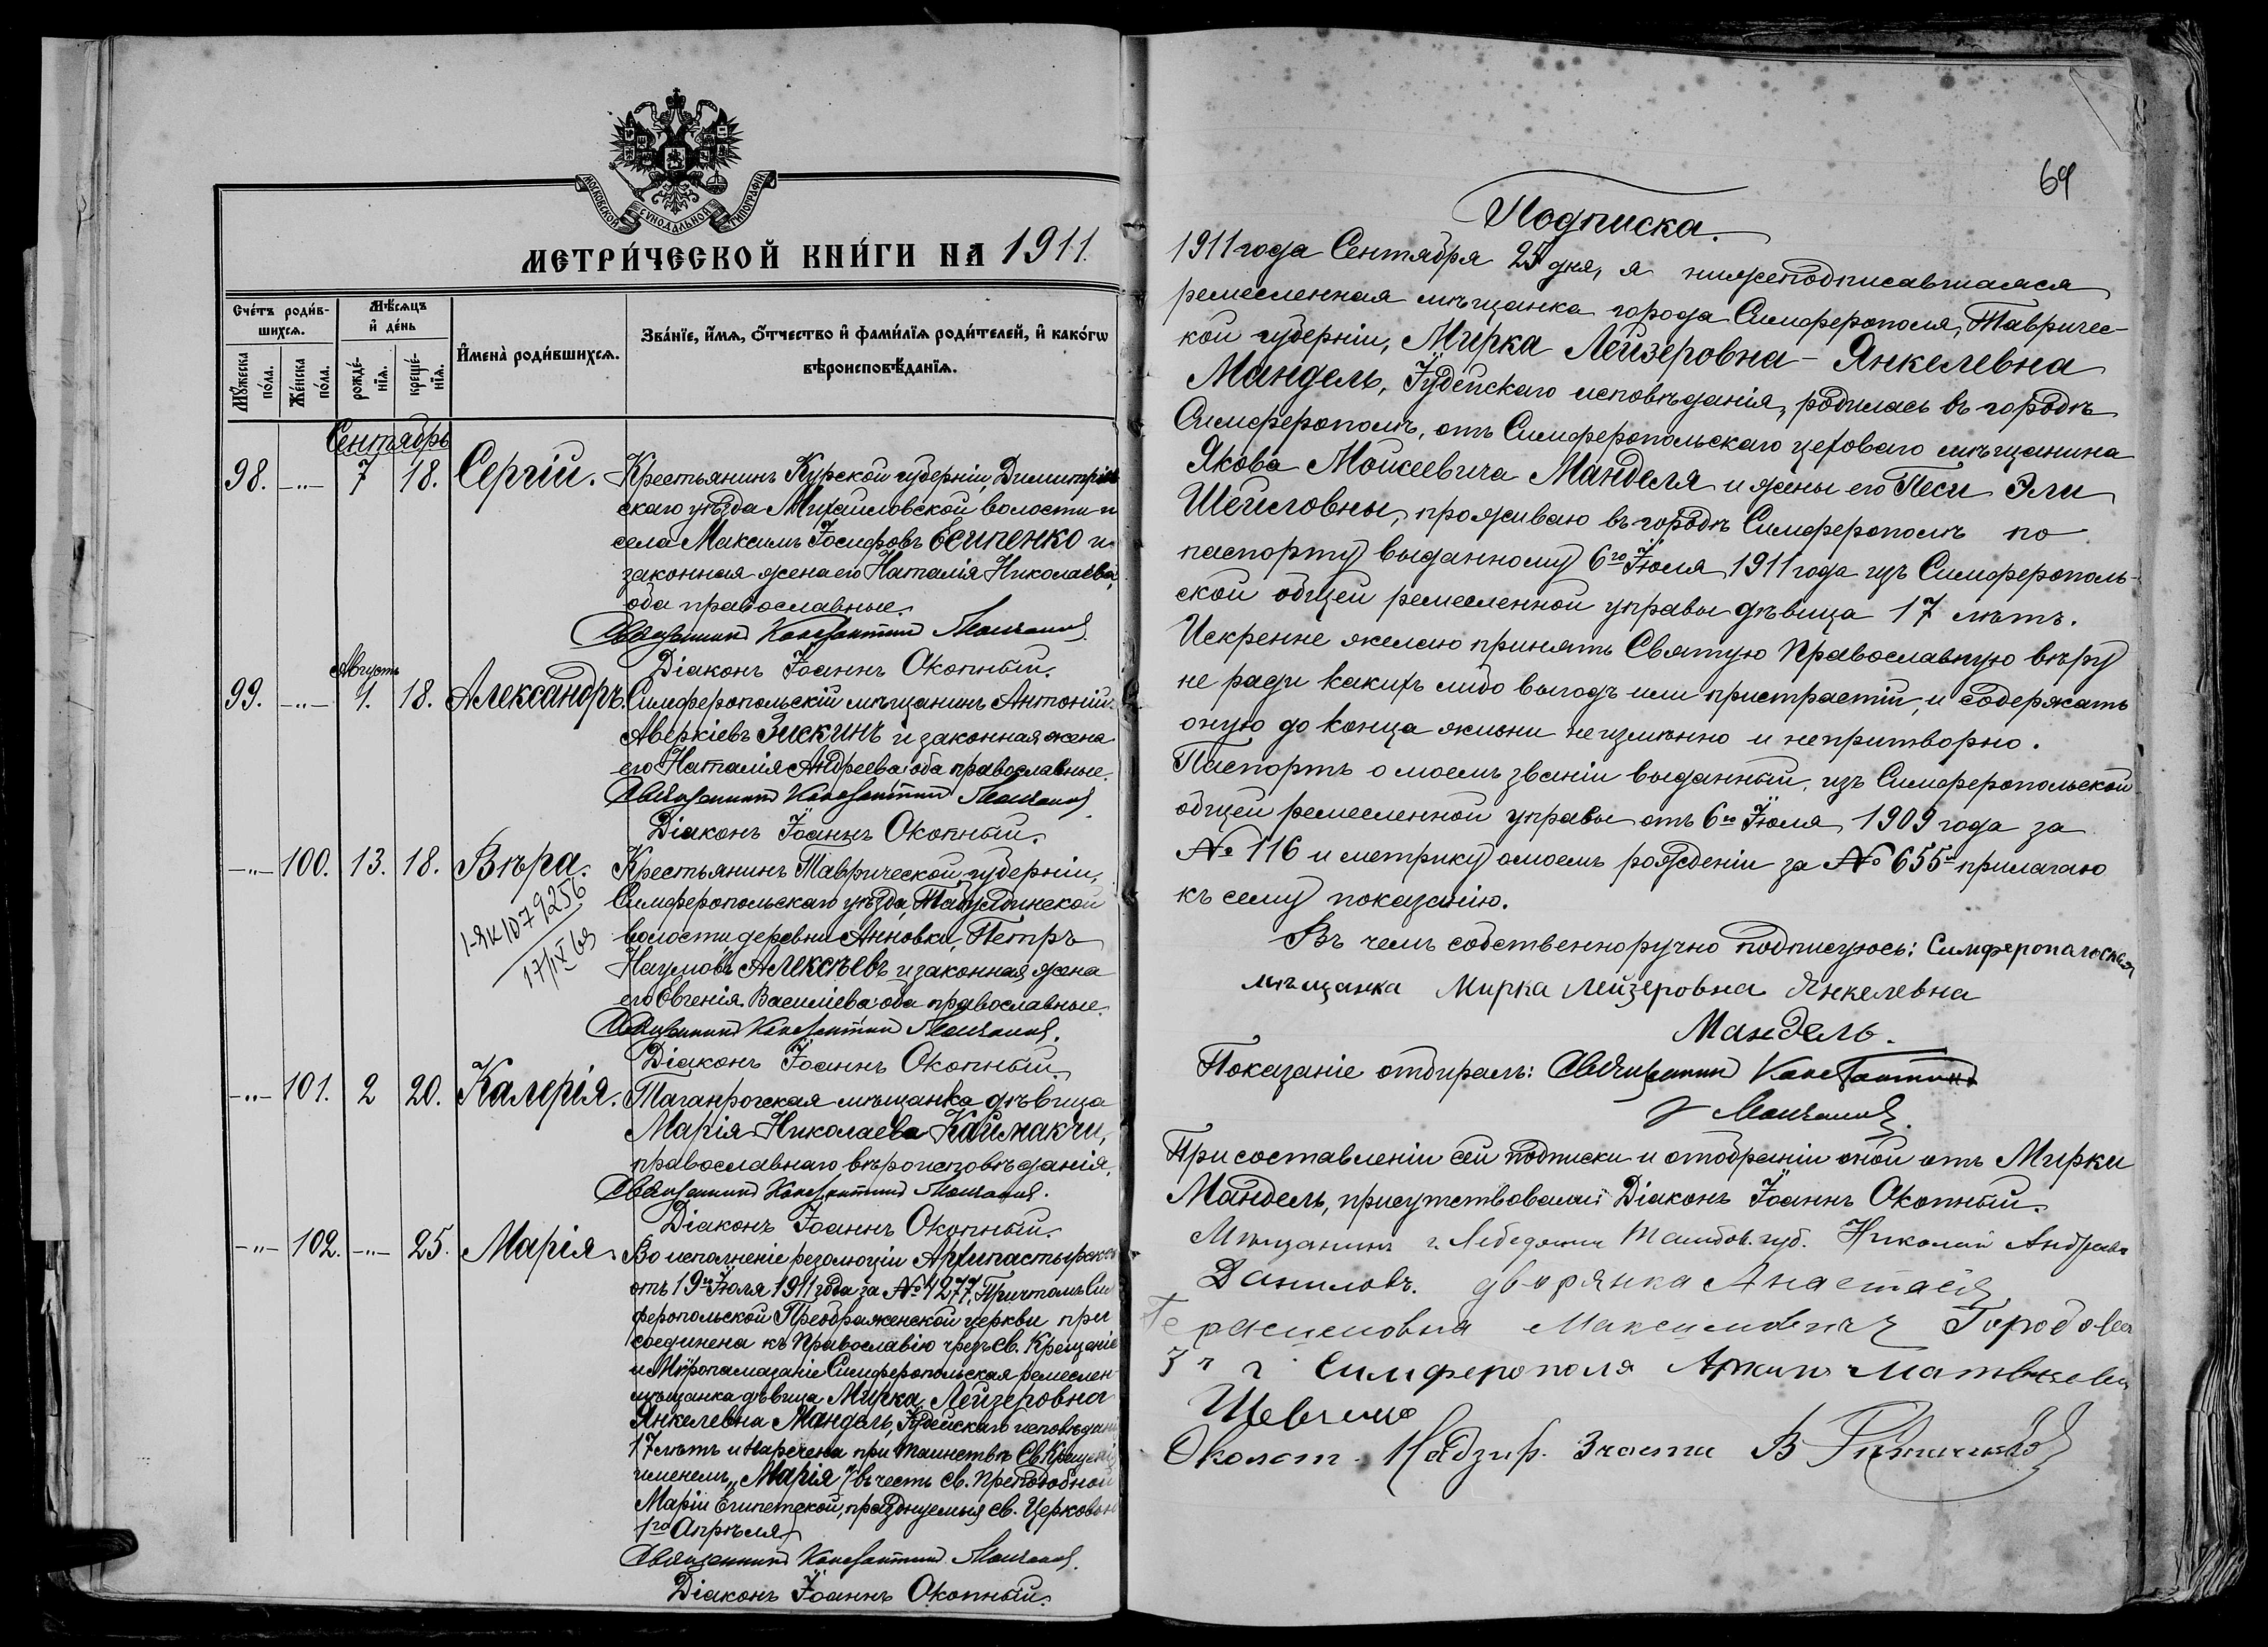 МОСКОВСКОЙ СѴНОДАЛЬНОЙ ТИПОГРАФІИ
МЕТРИ́ЧЕСКОЙ КНИ́ГИ НА 1911.
Сче́тъ роди́в-
шихсѧ.
Мѣ́сѧцъ
и҆ де́нь
Мꙋ́жеска
по́ла.
Же́нска
по́ла.
рожде́-
нїѧ.
креще́-
нїѧ.
И҆мена̀ роди́вшихсѧ.
Зва́нїе, и҆́мѧ, ѻ҆́тчество и҆ фами́лїѧ роди́телей, и҆ како́гѡ
вѣроисповѣ́данїѧ.
Сентябрь
98. -"- 7 18. Сергій. Крестьянинъ Курской губерніи, Димитріев
скаго уѣзда Михайловской волости и
села Максимъ Іосифовъ Есипенко и
законная жена его Наталія Николаева,
оба православные.
Священникъ Константинъ
Діаконъ Іоаннъ Окопный.
Августъ
99. -"- 1. 18. Александръ. Симферопольскій мѣщанинъ Антоній
Аверкіевъ Зискинъ и законная жена
его Наталія Андреева: оба православные.
Священникъ Константинъ
Діаконъ Іоаннъ Окопный.
-"- 100. 13. 18. Вѣра. Крестьянинъ Таврической губерніи,
Симферопольскаго уѣзда, Табулдинской
волости, деревни Анновки, Петръ
Наумовъ Алексѣевъ и законная жена
его Евгенія Василіева: оба православные.
I-ЯК 1079256
17/IX 69
Священникъ Константинъ
Діаконъ Іоаннъ Окопный
-"- 101. 2 20. Калерія. Таганрогская мѣщанка дѣвица
Марія Николаева Каймакчи,
православнаго вѣроисповѣданія.
Священникъ Константинъ
Діаконъ Іоаннъ Окопный.
-"- 102. -"- 25. Марія Во исполненіе резолюціи Архипастырской
отъ 19го Іюля 1911 года за № 4277, Причтомъ Сим
феропольской Преображенской церкви при
соединена къ Православію чрезъ св. Крещеніе
и Мѵропомазаніе Симферопольская ремеслен
мѣщанка дѣвица Мирка Лейзеровна
Янкелевна Мандель, Іудейскаго исповѣдан
17 лѣтъ и наречена при таинствѣ Св. Крещенія
именемъ „Марія" въ честь св. Преподобной
Маріи Египетской, празднуемыя св. Церковью
1го Апрѣля
Священникъ Константинъ
Діаконъ Іоаннъ Окопный.
69
Подписка.
1911 года Сентября 25 дня, я нижеподписавшаяся
ремесленная мѣщанка города Симферополя, Тавричес-
кой губерніи, Мирка Лейзеровна-Янкелевна
Мандель, Іудейскаго исповѣданія, родилась въ городѣ
Симферополѣ, отъ Симферопольскаго цехового мѣщанина
Якова Моисеевича Манделя и жены его Песи Эли
Шейловны, проживаю въ городѣ Симферополѣ по
паспорту выданному 6го Іюля 1911 года изъ Симферополь-
ской общей ремесленной управы дѣвица 17 лѣтъ.
Искренне желаю принять Святую Православную вѣру
не ради какихъ либо выгодъ или пристрастій, и содержать
оную до конца жизни неизмѣнно и непритворно.
Паспортъ о моемъ званіи выданный, изъ Симферопольской
общей ремесленной управы отъ 6го Іюля 1909 года за
№ 116 и метрику о моемъ рожденіи за № 655 прилагаю
къ сему показанію.
Въ чемъ собственноручно подписуюсь: Симферопольская
мѣщанка Мирка Лейзеровна Янкелевна
Мандель.
Показаніе отбиралъ: Священникъ Константинъ
При составленіи сей подписки и отобраніи оной отъ Мирки
Мандель, присутствовали: Діаконъ Іоаннъ Окопный.
Мѣщанинъ г. Лебедяни Тамбов. губ. Николай Андреев
Даниловъ. дворянка Анастасія
Герасимовна Максимовичъ Городовой
3 ч г. Симферополя Архип Матвѣев
Шевченко
Околот. Надзир. 3 части В